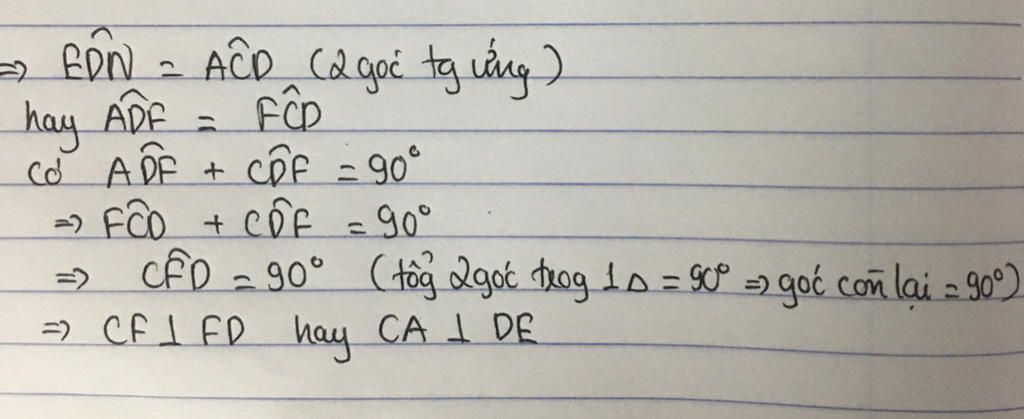 ⇒ ED̂N = AĈD (2 góc tg ứng)
hay AD̂F = FĈD
có AD̂F + CD̂F = 90°
⇒ FĈD + CD̂F = 90°
⇒ CF̂D = 90° (tổg 2 góc trog 1 Δ = 90° ⇒ góc còn lại = 90°)
⇒ CF ⊥ FD hay CA ⊥ DE